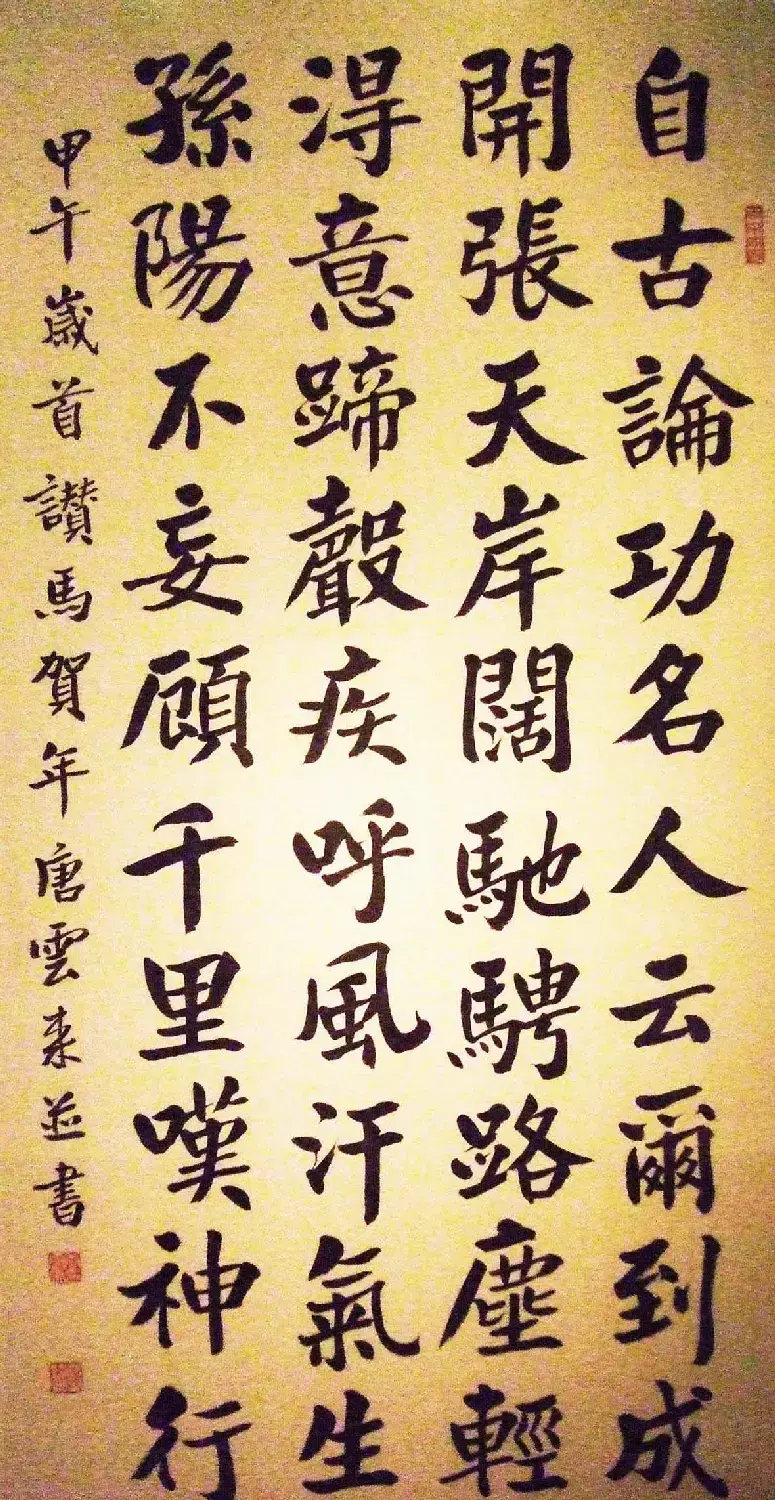 自古論功名人云爾到成
開張天岸闊馳騁路塵輕
淂意蹄聲疾呼風汗氣生
孫陽不妄顧千里嘆神行
甲午歲首讚馬賀年唐雲来並書